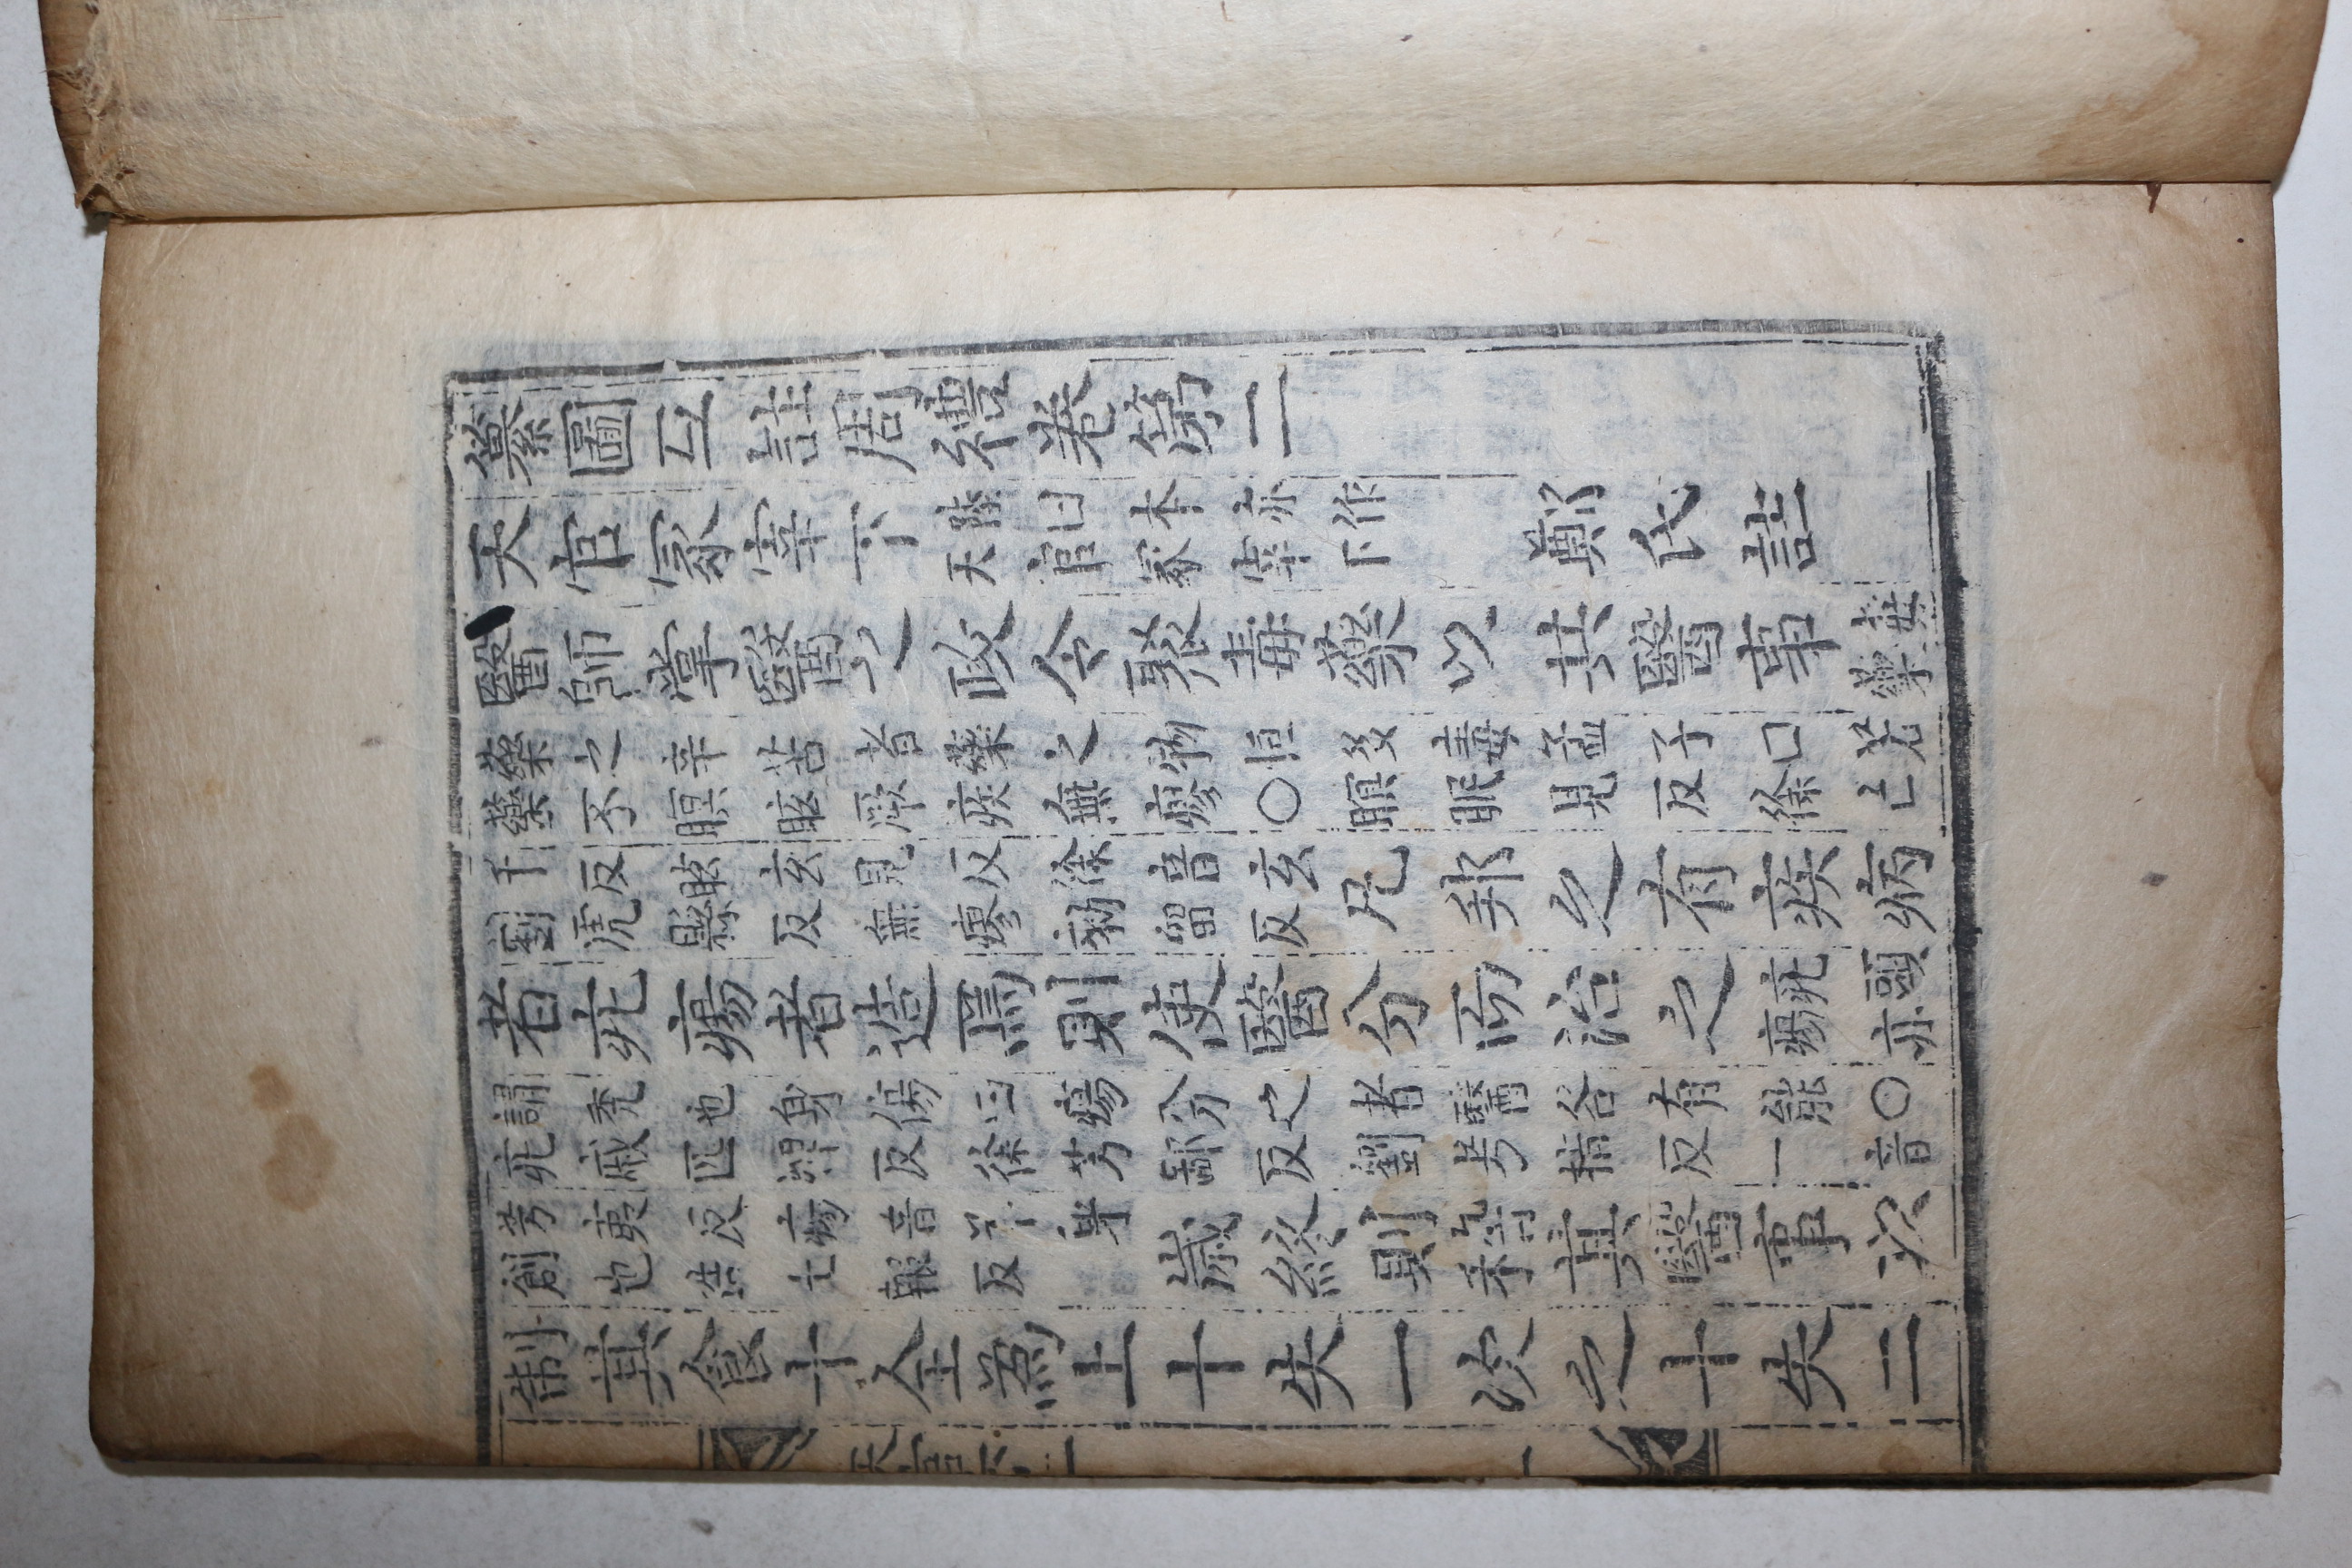 纂圖互註周禮卷第二
天官冢宰下 陸曰本亦作
天官冢宰下
鄭氏註
醫師掌醫之政令聚毒藥以共醫事 毒
藥
藥之辛苦者藥之物恒多毒孟子口若
藥不瞑眩厥疾無瘳○瞑眠見反徐亡
千反眩玄見反徐音玄
劉虎縣反無瘳勑留反
凡邦之有疾病
者疕瘍者造焉則使醫分而治之 疕頭
瘍亦
謂禿也身傷曰瘍分之者醫各有能○
疕戚匹婢反徐芳鄙反劉芳指反一音
芳夷反瘍音羊身
創也造七報反
歲終則稽其醫事以
制其食十全爲上十失一次之十失二